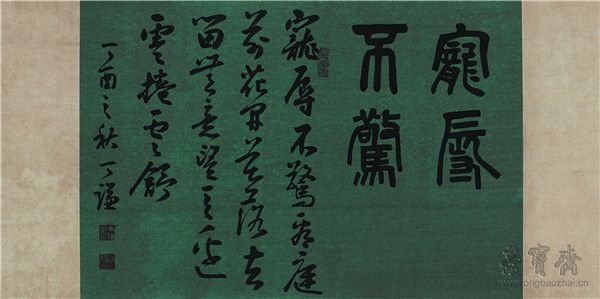 寵辱
不驚
寵辱不驚看庭
前花開花落去
留無意望天邊
雲捲雲舒
丁酉之秋 丁謙
榮寶齋
www.rongbaozhai.cn